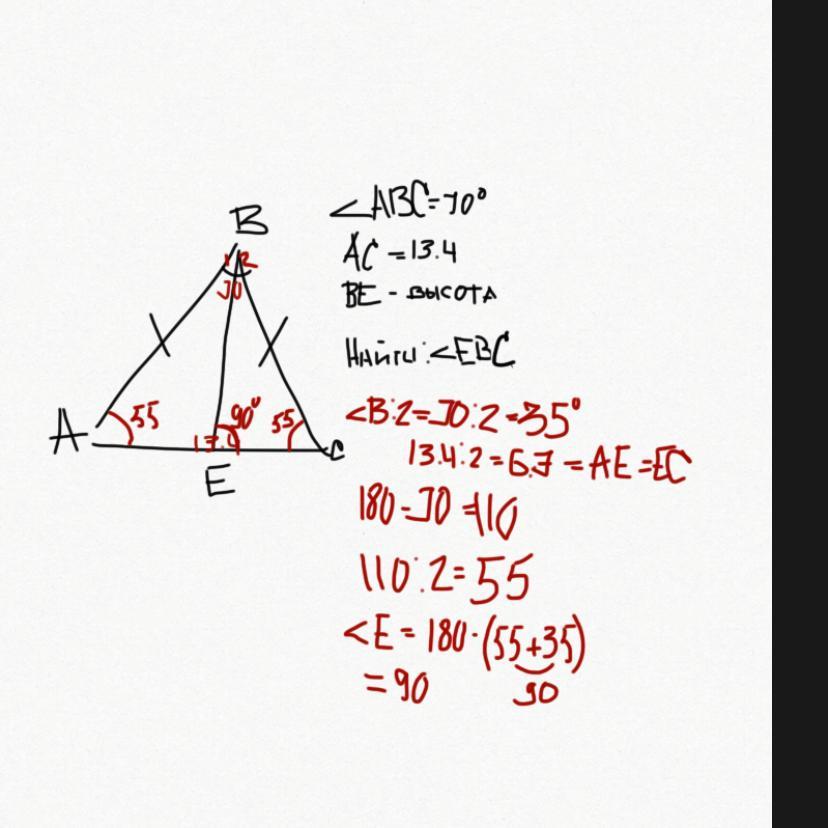 B
<ABC=70°
AC=13.4
BE - высота
Найти: <EBC
1 2
70
A
55
90°
55
C
13.4
E
<B:2=70:2=35°
13.4:2=6.7=AE=EC
180-70=110
110:2=55
<E=180-(55+35)
=90
90